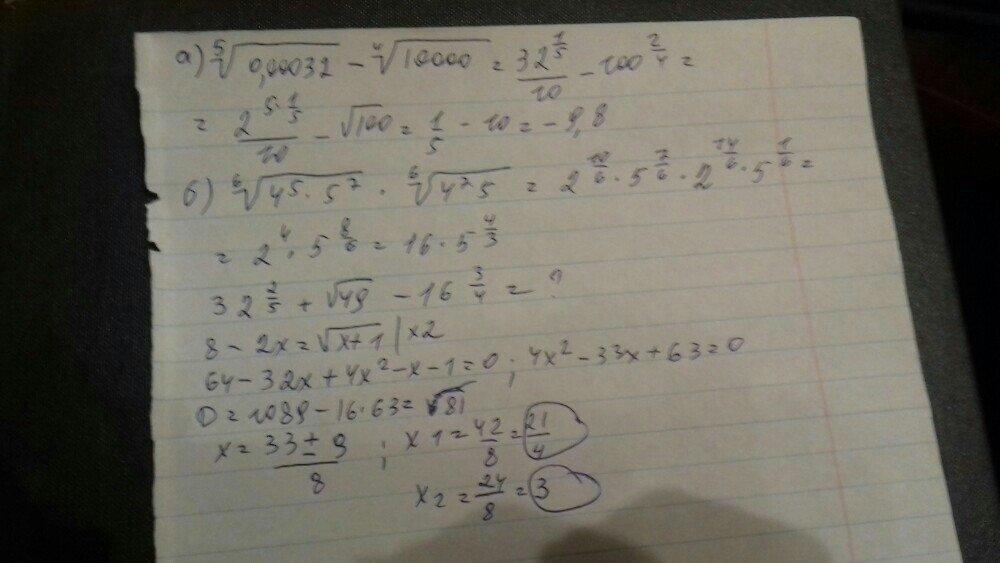 а) ⁵√0,00032 − ⁴√10000 = 32^(1/5)/10 − 100^(2/4) =
= 2^(5·1/5)/10 − √100 = 1/5 − 10 = −9,8
б) ⁶√(4⁵·5⁷) · ⁶√(4²5) = 2^(10/6) · 5^(7/6) · 2^(14/6) · 5^(1/6) =
= 2⁴ · 5^(8/6) = 16 · 5^(4/3)
32^(2/5) + √49 − 16^(3/4) = ?
8 − 2x = √(x+1) | x2
64 − 32x + 4x² − x − 1 = 0 ; 4x² − 33x + 63 = 0
D = 1089 − 16·63 = √81
x = (33 ± 9)/8 ; x1 = 42/8 = 21/4
x2 = 24/8 = 3